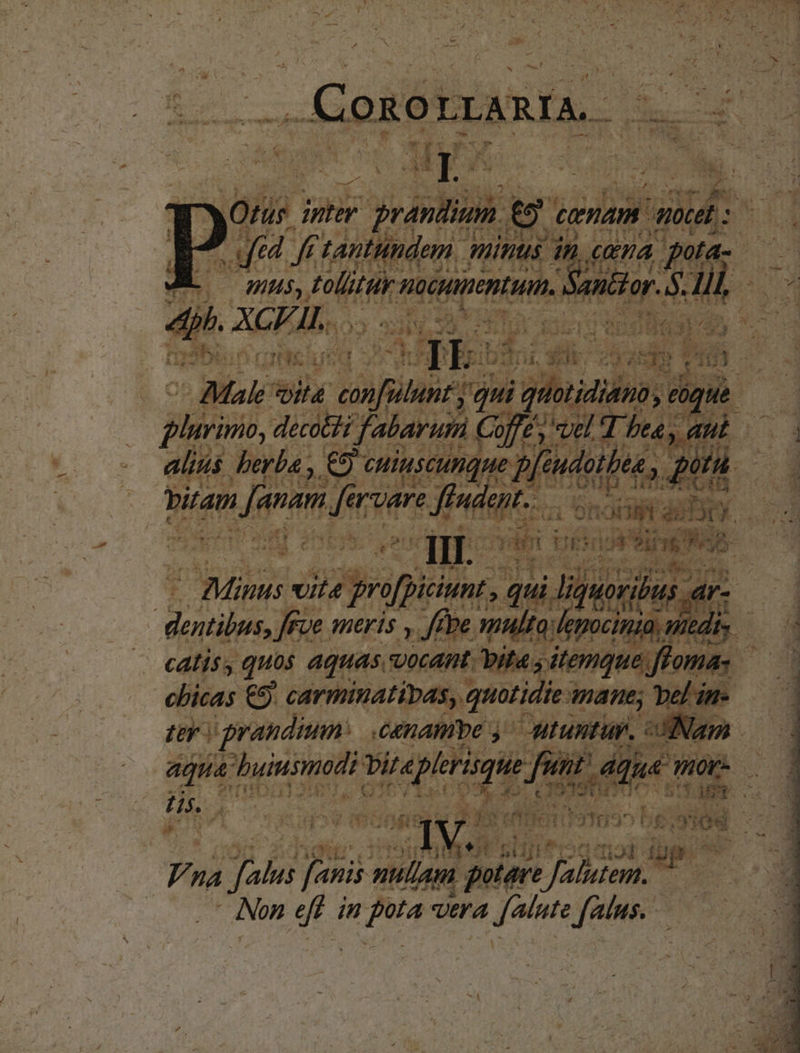 COROLLARIA.
I.
POtus inter prandium & cœnam nocet:
sed si tantundem minus in cœna pota-
mus, tollitur nocumentum. Sanctor. S. III,
Aph. XCVII.
II.
Male vitæ consulunt, qui quotidiano, eoque
plurimo, decocti fabarum Coffe, vel Thea, aut
alius herbæ, & cuiuscunque pseudotheæ, potu
vitam sanam servare student.
III.
Minus vitæ prospiciunt, qui liquoribus ar-
dentibus, sive meris, sive multa lenocinia, medi-
catis, quos aquas vocant vitæ, itemque stoma-
chicas & carminativas, quotidie mane, vel in-
ter prandium cœnamve, utuntur. Nam
aquæ huiusmodi vitæ plerisque sunt aquæ mor-
tis.
IV.
Vna salus sanis nullam potare salutem.
Non est in pota vera salute salus.